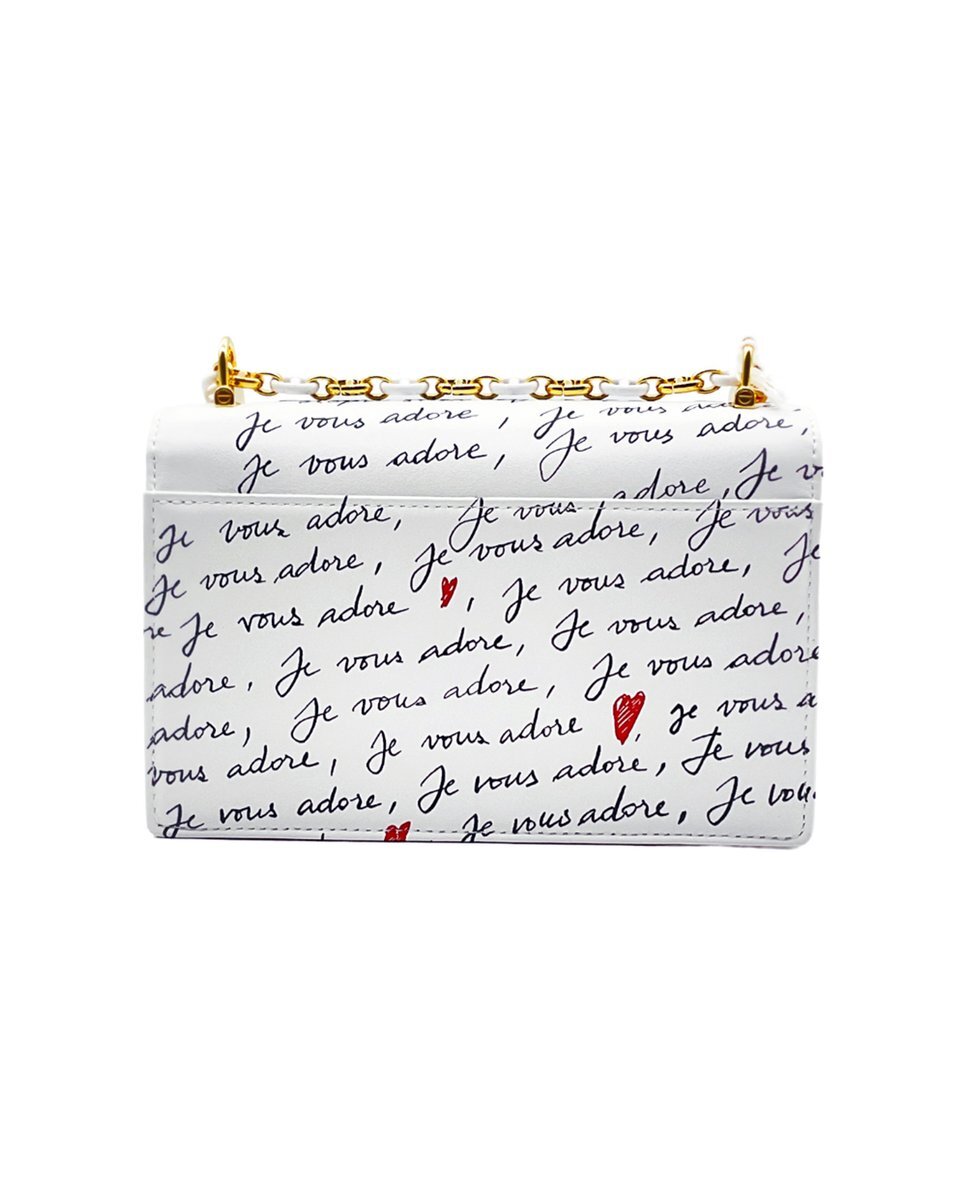 Je vous adore, Je vous
Je vous adore, Je vous adore,
Je vous adore, Je vous adore, Je vous
Je vous adore, Je vous adore, Je
Je vous adore, Je vous adore,
re Je vous adore, Je vous adore,
adore, Je vous adore, Je vous adore
adore, Je vous adore, Je vous a
vous adore, Je vous adore, Je vous
Je vous adore, Je vous adore, Je vou
Je vous adore,